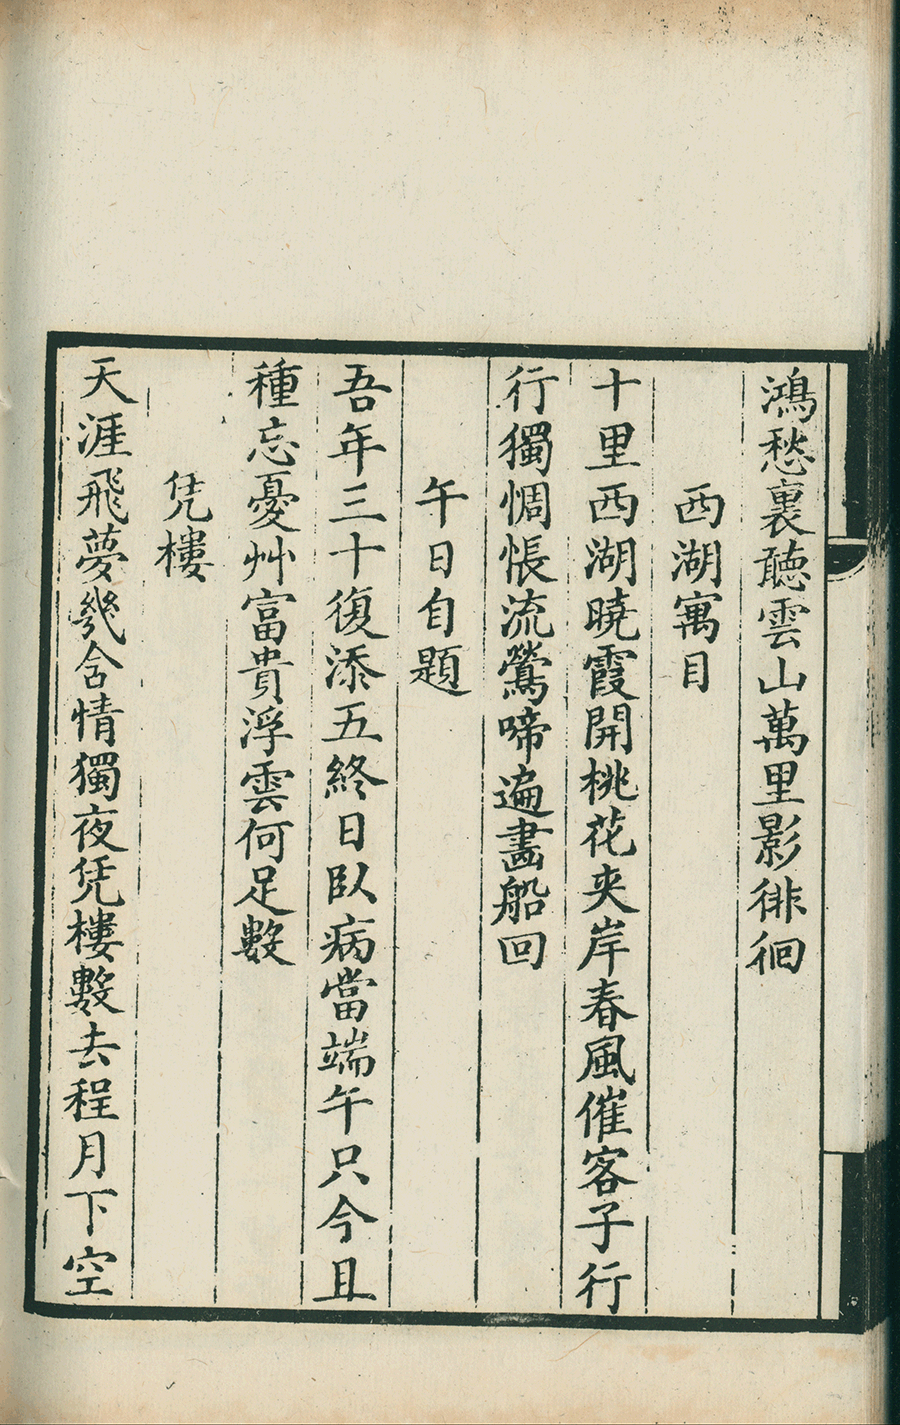 鴻愁裏聽雲山萬里影徘徊
西湖寓目
十里西湖曉霞開桃花夾岸春風催客子行
行獨惆悵流鶯啼遍畵船回
午日自題
吾年三十復添五終日臥病當端午只今且
種忘憂艸富貴浮雲何足數
凭樓
天涯飛夢幾含情獨夜凭樓數去程月下空